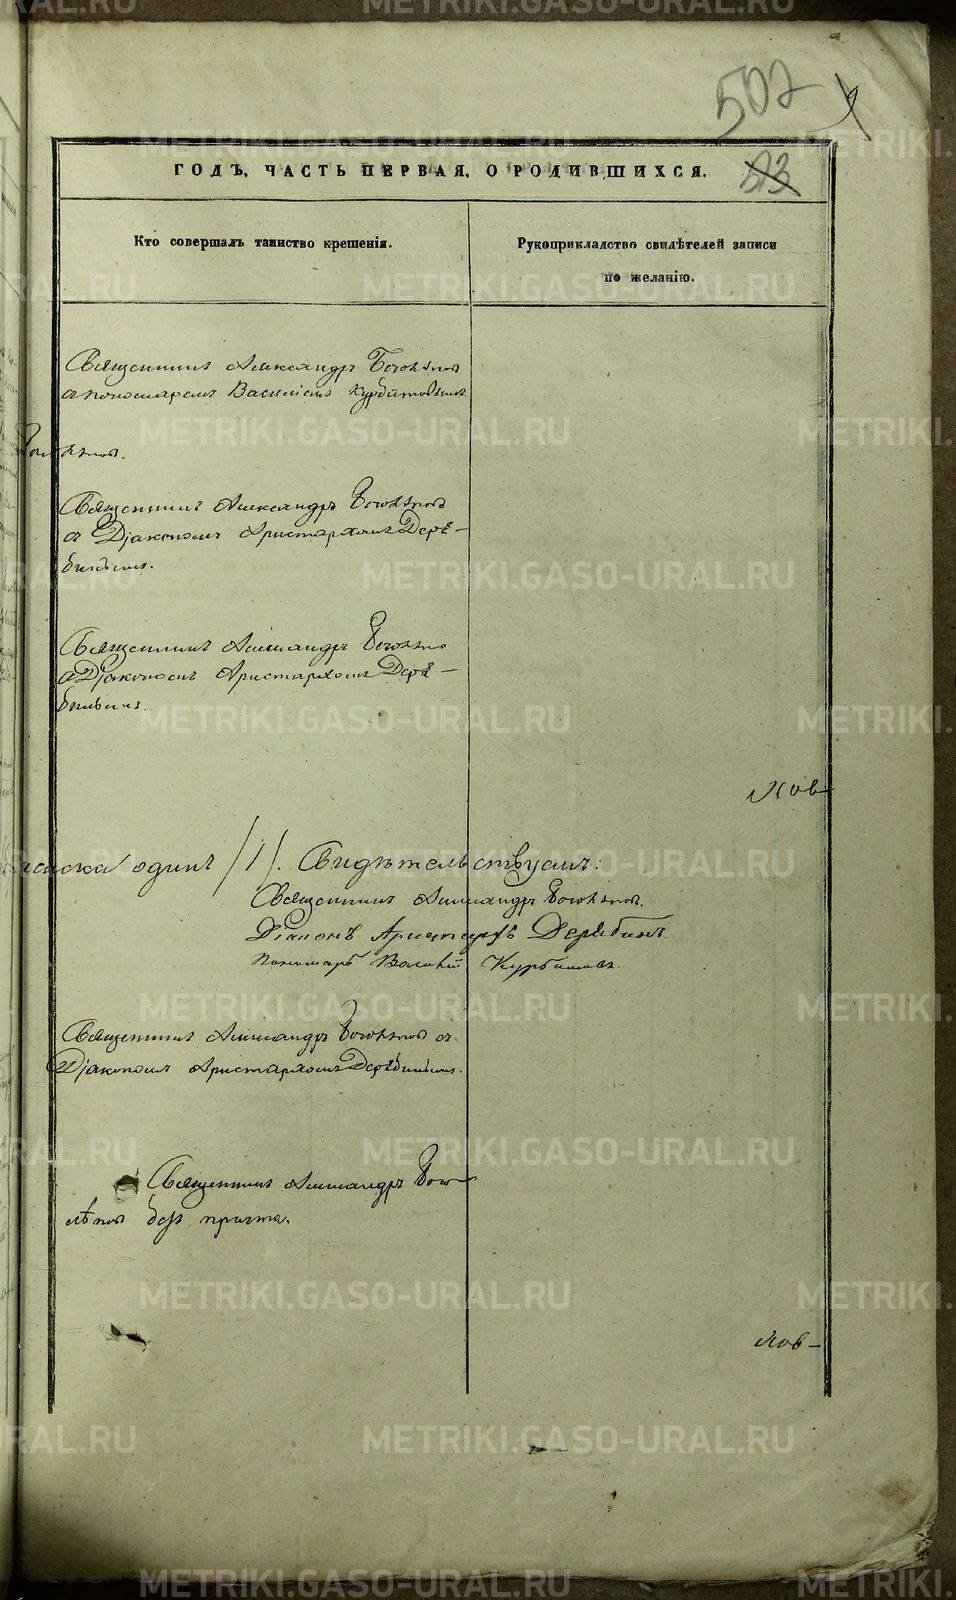 502
513
ГОДЪ, ЧАСТЬ ПЕРВАЯ, О РОДИВШИХСЯ.
Кто совершалъ таинство крещенія.
Рукоприкладство свидѣтелей записи
по желанію.
Священникъ Александръ Боголѣповъ
съ пономаремъ Василіемъ Курбатовымъ
Священникъ Александръ Боголѣповъ
съ Діакономъ Аристархомъ Деря-
бинымъ.
Священникъ Александръ Боголѣповъ
съ Діакономъ Аристархомъ Деря-
бинымъ.
одинъ /1/. Свидѣтельствуемъ:
Священникъ Александръ Боголѣповъ.
Діаконъ Аристархъ Дерябинъ.
Пономарь Василій Курбатовъ.
Священникъ Александръ Боголѣповъ съ
Діакономъ Аристархомъ Дерябинымъ.
Священникъ Александръ Бого-
лѣповъ безъ причта.
METRIKI.GASO-URAL.RU